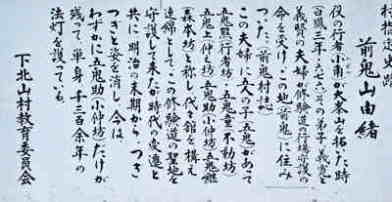 前鬼山由緒
役の行者小角が大峯山を拓いた時
(白鳳三年・六七六)の弟子、義覚と
義賢の夫婦が修験道の道場守護の
命を受け、この地(前鬼)に住み
ついた。(前鬼村社)
この夫婦に五人の子(五鬼)があって
五鬼熊(行者坊)五鬼童(不動坊)
五鬼上(中之坊)五鬼助(小仲坊)五鬼継
(森本坊)と称し代々館を構え
連綿としてこの修験道の聖地を
守護して来たが時代の変遷と
共に明治の末期から、つぎ
つぎと姿を消し、今は
わずかに五鬼助(小仲坊)だけが
残って、単身、千三百余年の
法灯を護っている。
下北山村教育委員会